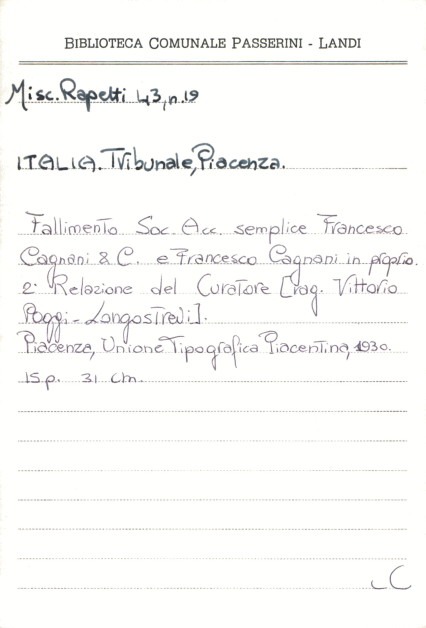 BIBLIOTECA COMUNALE PASSERINI - LANDI
Misc. Rapetti 43, n. 19
ITALIA. Tribunale, Piacenza.
Fallimento Soc. Acc. semplice Francesco
Cagnani & C. e Francesco Cagnani in proprio.
2ª Relazione del Curatore [rag. Vittorio
Poggi - Longostrevi].
Piacenza, Unione Tipografica Piacentina, 1930.
15 p. 31 cm.